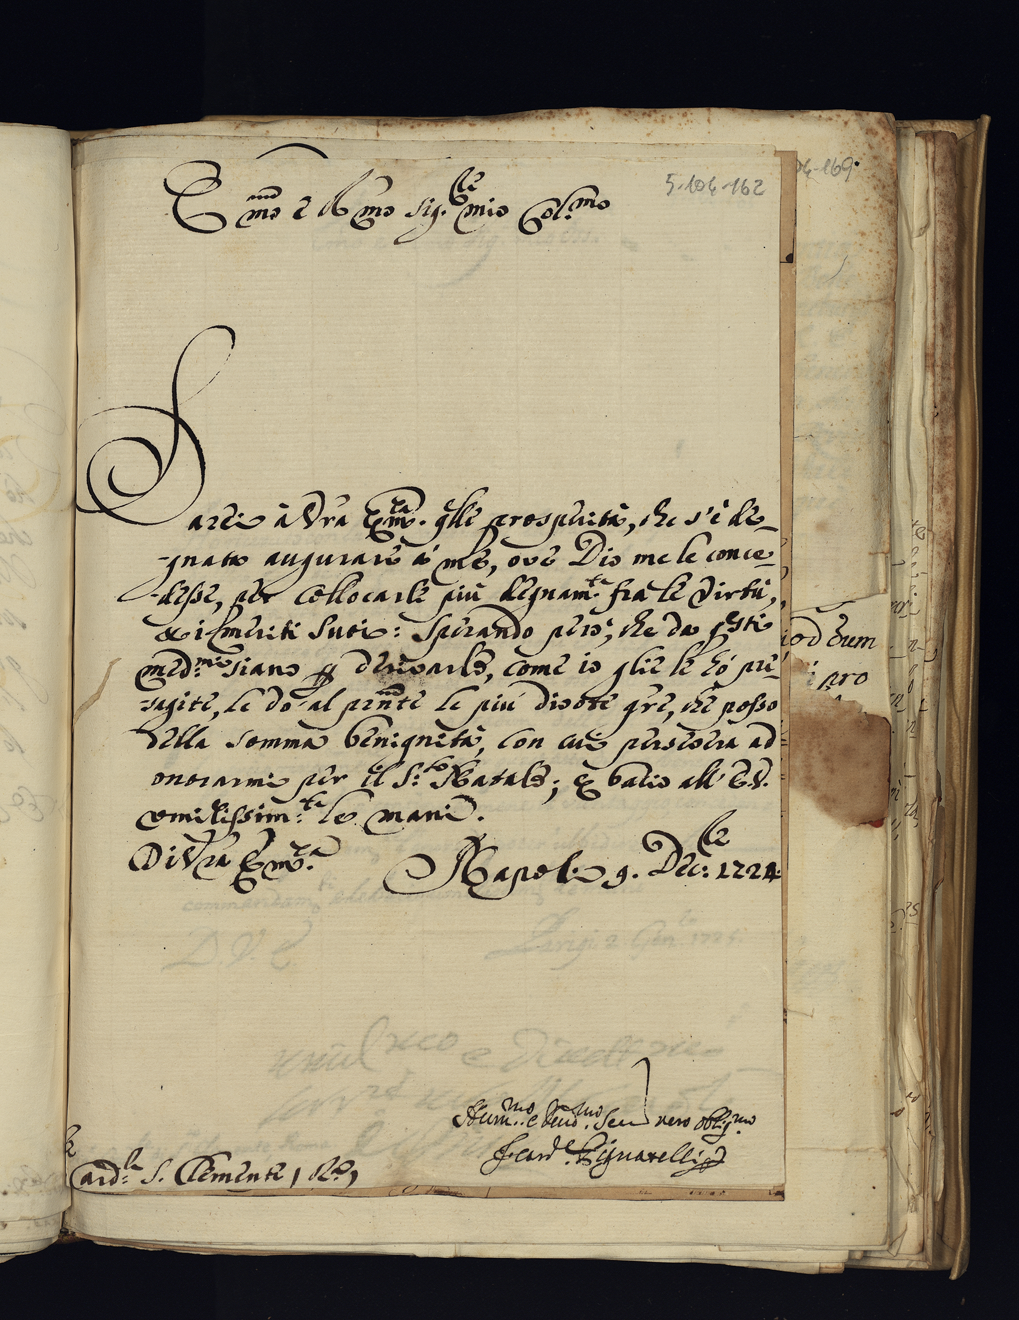 5-104-162
Em̃mo e R̃mo Sig.re mio Col.mo
Sarei à Vr̃a Em̃.za qlle prosperità, che s'è de-
gnata augurare à me, ove Dio me le conce-
desse, per collocarle più degnam.te fra le Virtù,
e i meriti Suoi: Sperando però, che da questi
med.mi siano p derivarle, come io glie le hò pre-
sagite, le do' al pñte le più divote gre, che posso
della somma benignità, con cui persevera ad
onorarmi per il S.to Natale; e bacio all' E.V.
umilissim.te le mani.
Di Vr̃a Em̃.za
Napoli 9. Dec.bre 1724.
Hum.mo e Dev.mo Ser vero oblig.mo
F. Card.l Pignatelli
Card.le S. Clemente, R
iod eum
pro